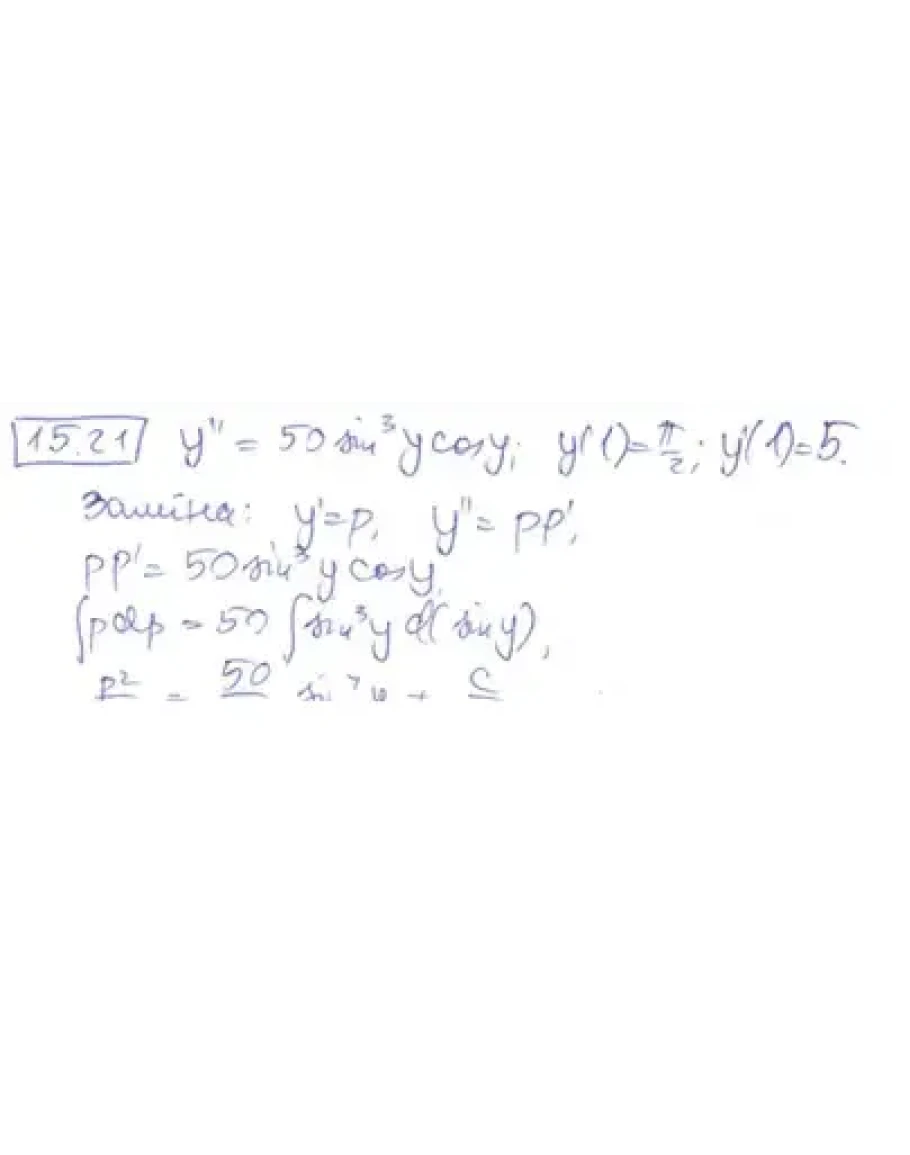 15.21 y'' = 50 sin³ y cos y; y(1) = π/2; y'(1) = 5.
Заміна: y' = p, y'' = pp',
pp' = 50 sin³ y cos y,
∫pdp = 50 ∫sin³ y d(sin y),
p² = 50 sin y + C